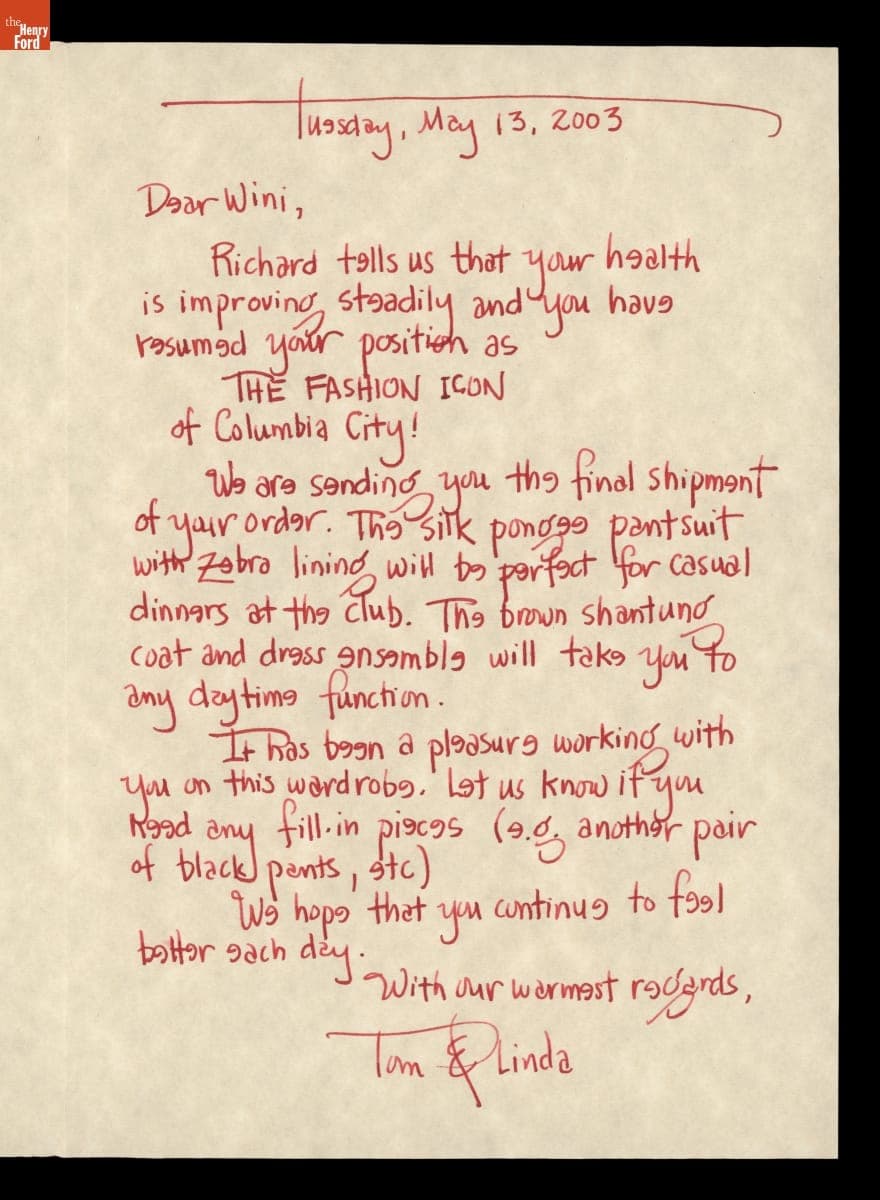 the
Henry
Ford
Tuesday, May 13, 2003
Dear Wini,
Richard tells us that your health
is improving steadily and you have
resumed your position as
THE FASHION ICON
of Columbia City!
We are sending you the final shipment
of your order. The silk pongee pantsuit
with zebra lining will be perfect for casual
dinners at the club. The brown shantung
coat and dress ensemble will take you to
any daytime function.
It has been a pleasure working with
you on this wardrobe. Let us know if you
need any fill-in pieces (e.g. another pair
of black pants, etc)
We hope that you continue to feel
better each day.
With our warmest regards,
Tom & Linda